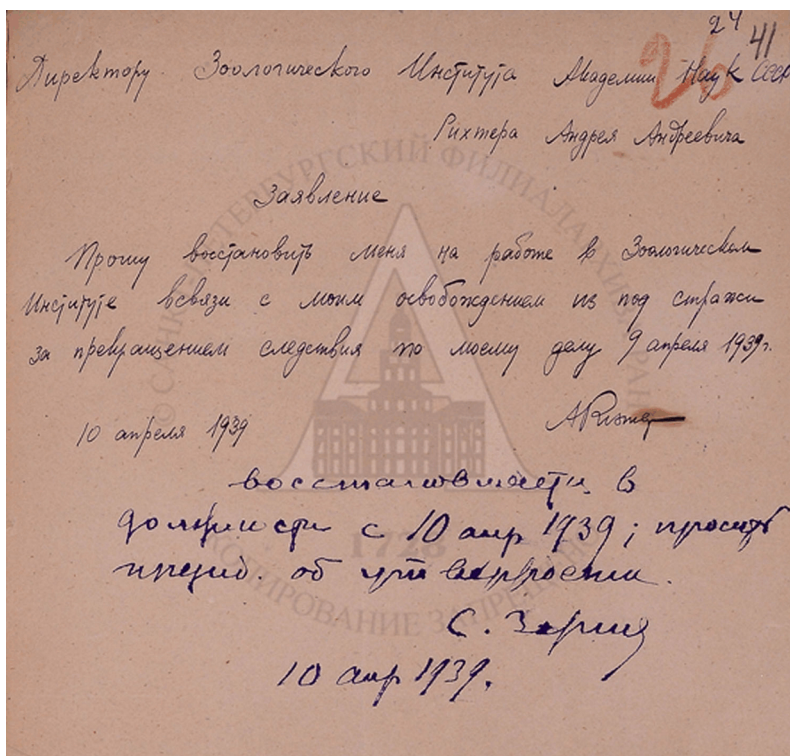 24
41
26
Директору Зоологического Института Академии Наук СССР
Рихтера Андрея Андреевича
Заявление
Прошу восстановить меня на работе в Зоологическом
Институте всвязи с моим освобождением из под стражи
за прекращением следствия по моему делу 9 апреля 1939 г.
10 апреля 1939
АРихтер
восстановить в
должности с 10 апр 1939; просить
презид. об
С.
10 апр 1939.
© САНКТ-ПЕТЕРБУРГСКИЙ ФИЛИАЛ АРХИВА РАН
1728
КОПИРОВАНИЕ ЗАПРЕЩЕНО